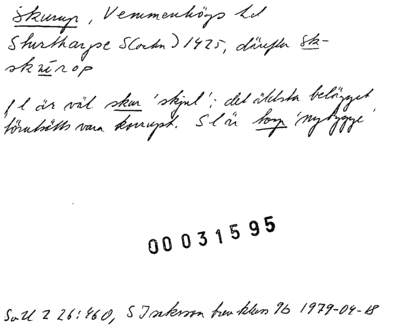 Skurup, Vemmenhögs hd
Skurtharpe S(ocku) 1425, därefter Sk-
skurop
fl är väl skur 'skjul'; det äldsta belägget
förutsätts vara korrupt. Sl är torp 'nybygge'
00031595
SOU 2 26:460, S Isaksson brevklass 96 1979-04-18